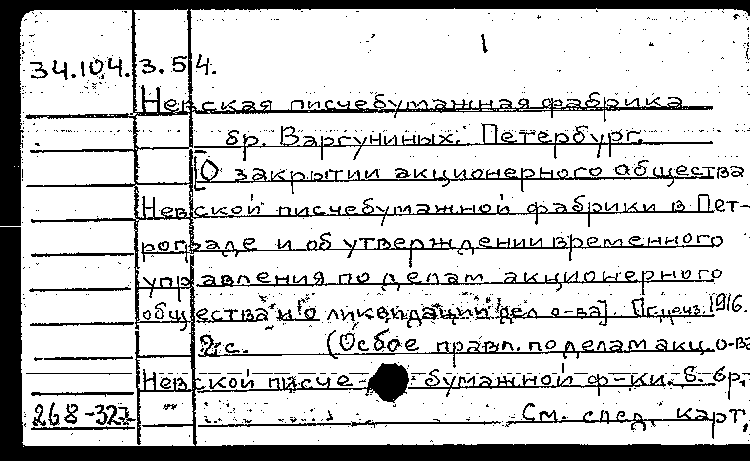 1
34.104.3.54.
Невская писчебумажная фабрика
бр. Варгуниных. Петербург.
[О закрытии акционерного общества
Невской писчебумажной фабрики в Пет-
рограде и об утверждении временного
управления по делам акционерного
общества и о ликвидации дел о-ва]. Пг, ценз. 1916.
2 с. (Особое правл. по делам акц. о-ва
Невской писче-бумажной ф-ки. б. бр.
268-327 См. след. карт.